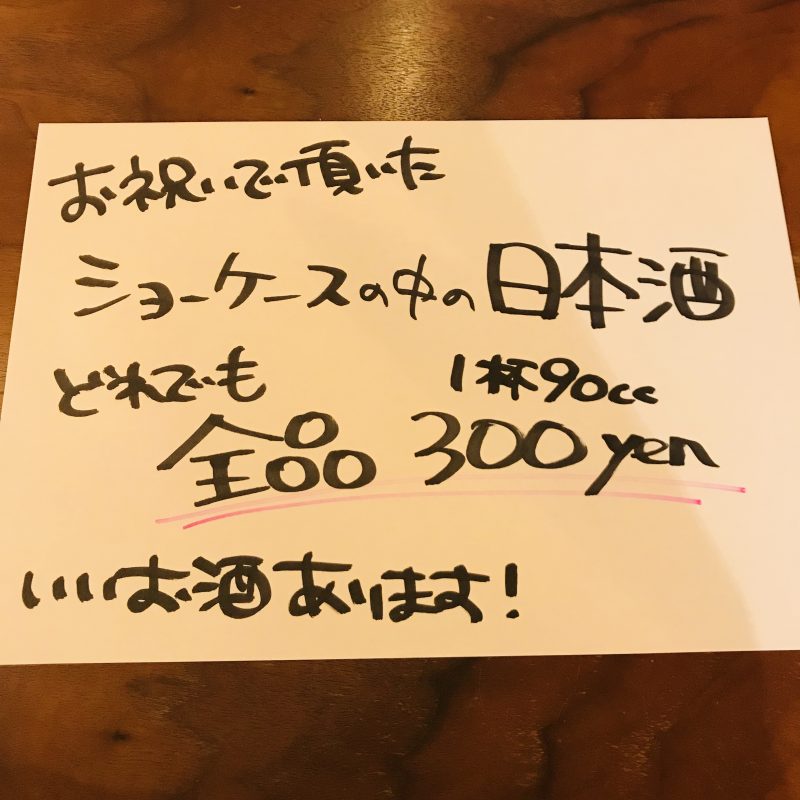 お祝いで頂いた
ショーケースの中の日本酒
どれでも 1杯90cc
全品 300yen
いいお酒あります!